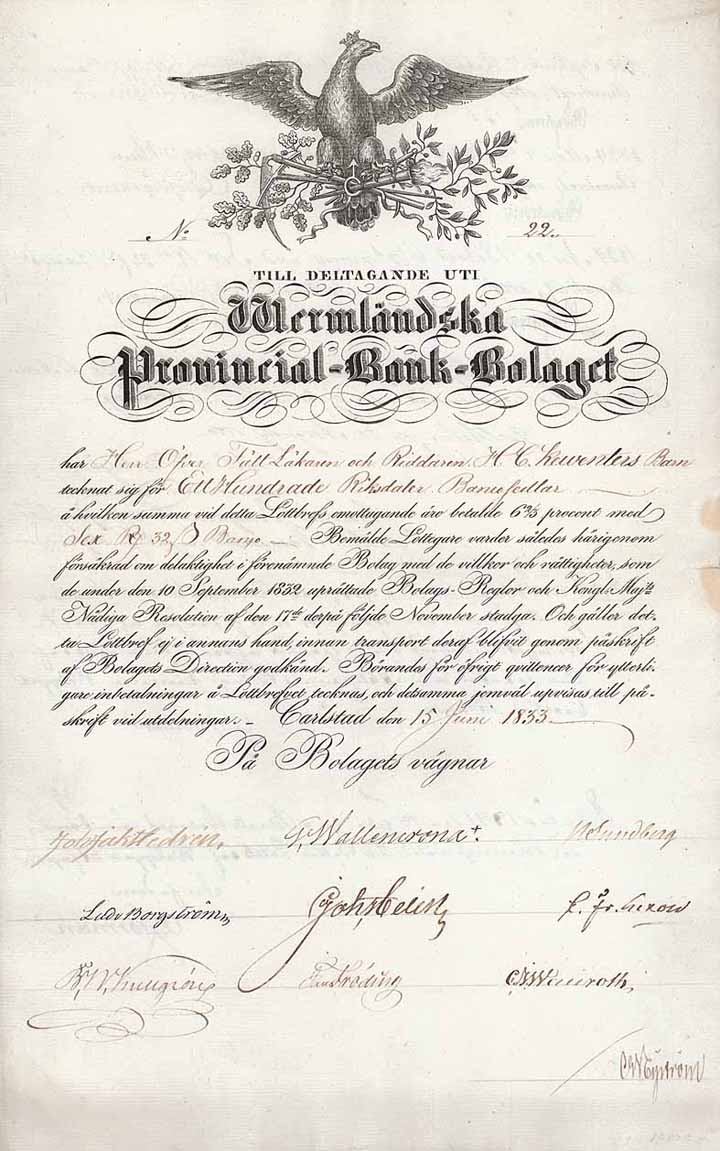 No 22.
TILL DELTAGANDE UTI
Wermländska
Provincial-Bank-Bolaget
har Herr Öfver Fält Läkaren och Riddaren H. C. Kewenters Barn
tecknat sig för Ett Hundrade Riksdaler Bancosedlar
å hvilken summa vid detta Lottbrefs emottagande äro betalde 6⅔ procent med
Sex Rd 32 ß Banco Bemälde Lottegare varder således härigenom
försäkrad om delaktighet i förenämnde Bolag med de villkor och rättigheter, som
de under den 10 September 1832 uprättade Bolags-Reglor och Kongl. Maj:ts
Nådiga Resolution af den 17de derpå följde November stadga. Och gäller det-
ta Lottbref ej i annans hand, innan transport deraf blifvit genom påskrift
af Bolagets Direction godkänd. Börandes för öfrigt qvittencer för ytterli-
gare inbetalningar å Lottbrefvet tecknas, och detsamma jemväl upvisas till på-
skrift vid utdelningar. Carlstad den 15 Juni 1833.
På Bolagets vägnar
Wallencrona
Lundberg
Borgström
Fröding
Nyström